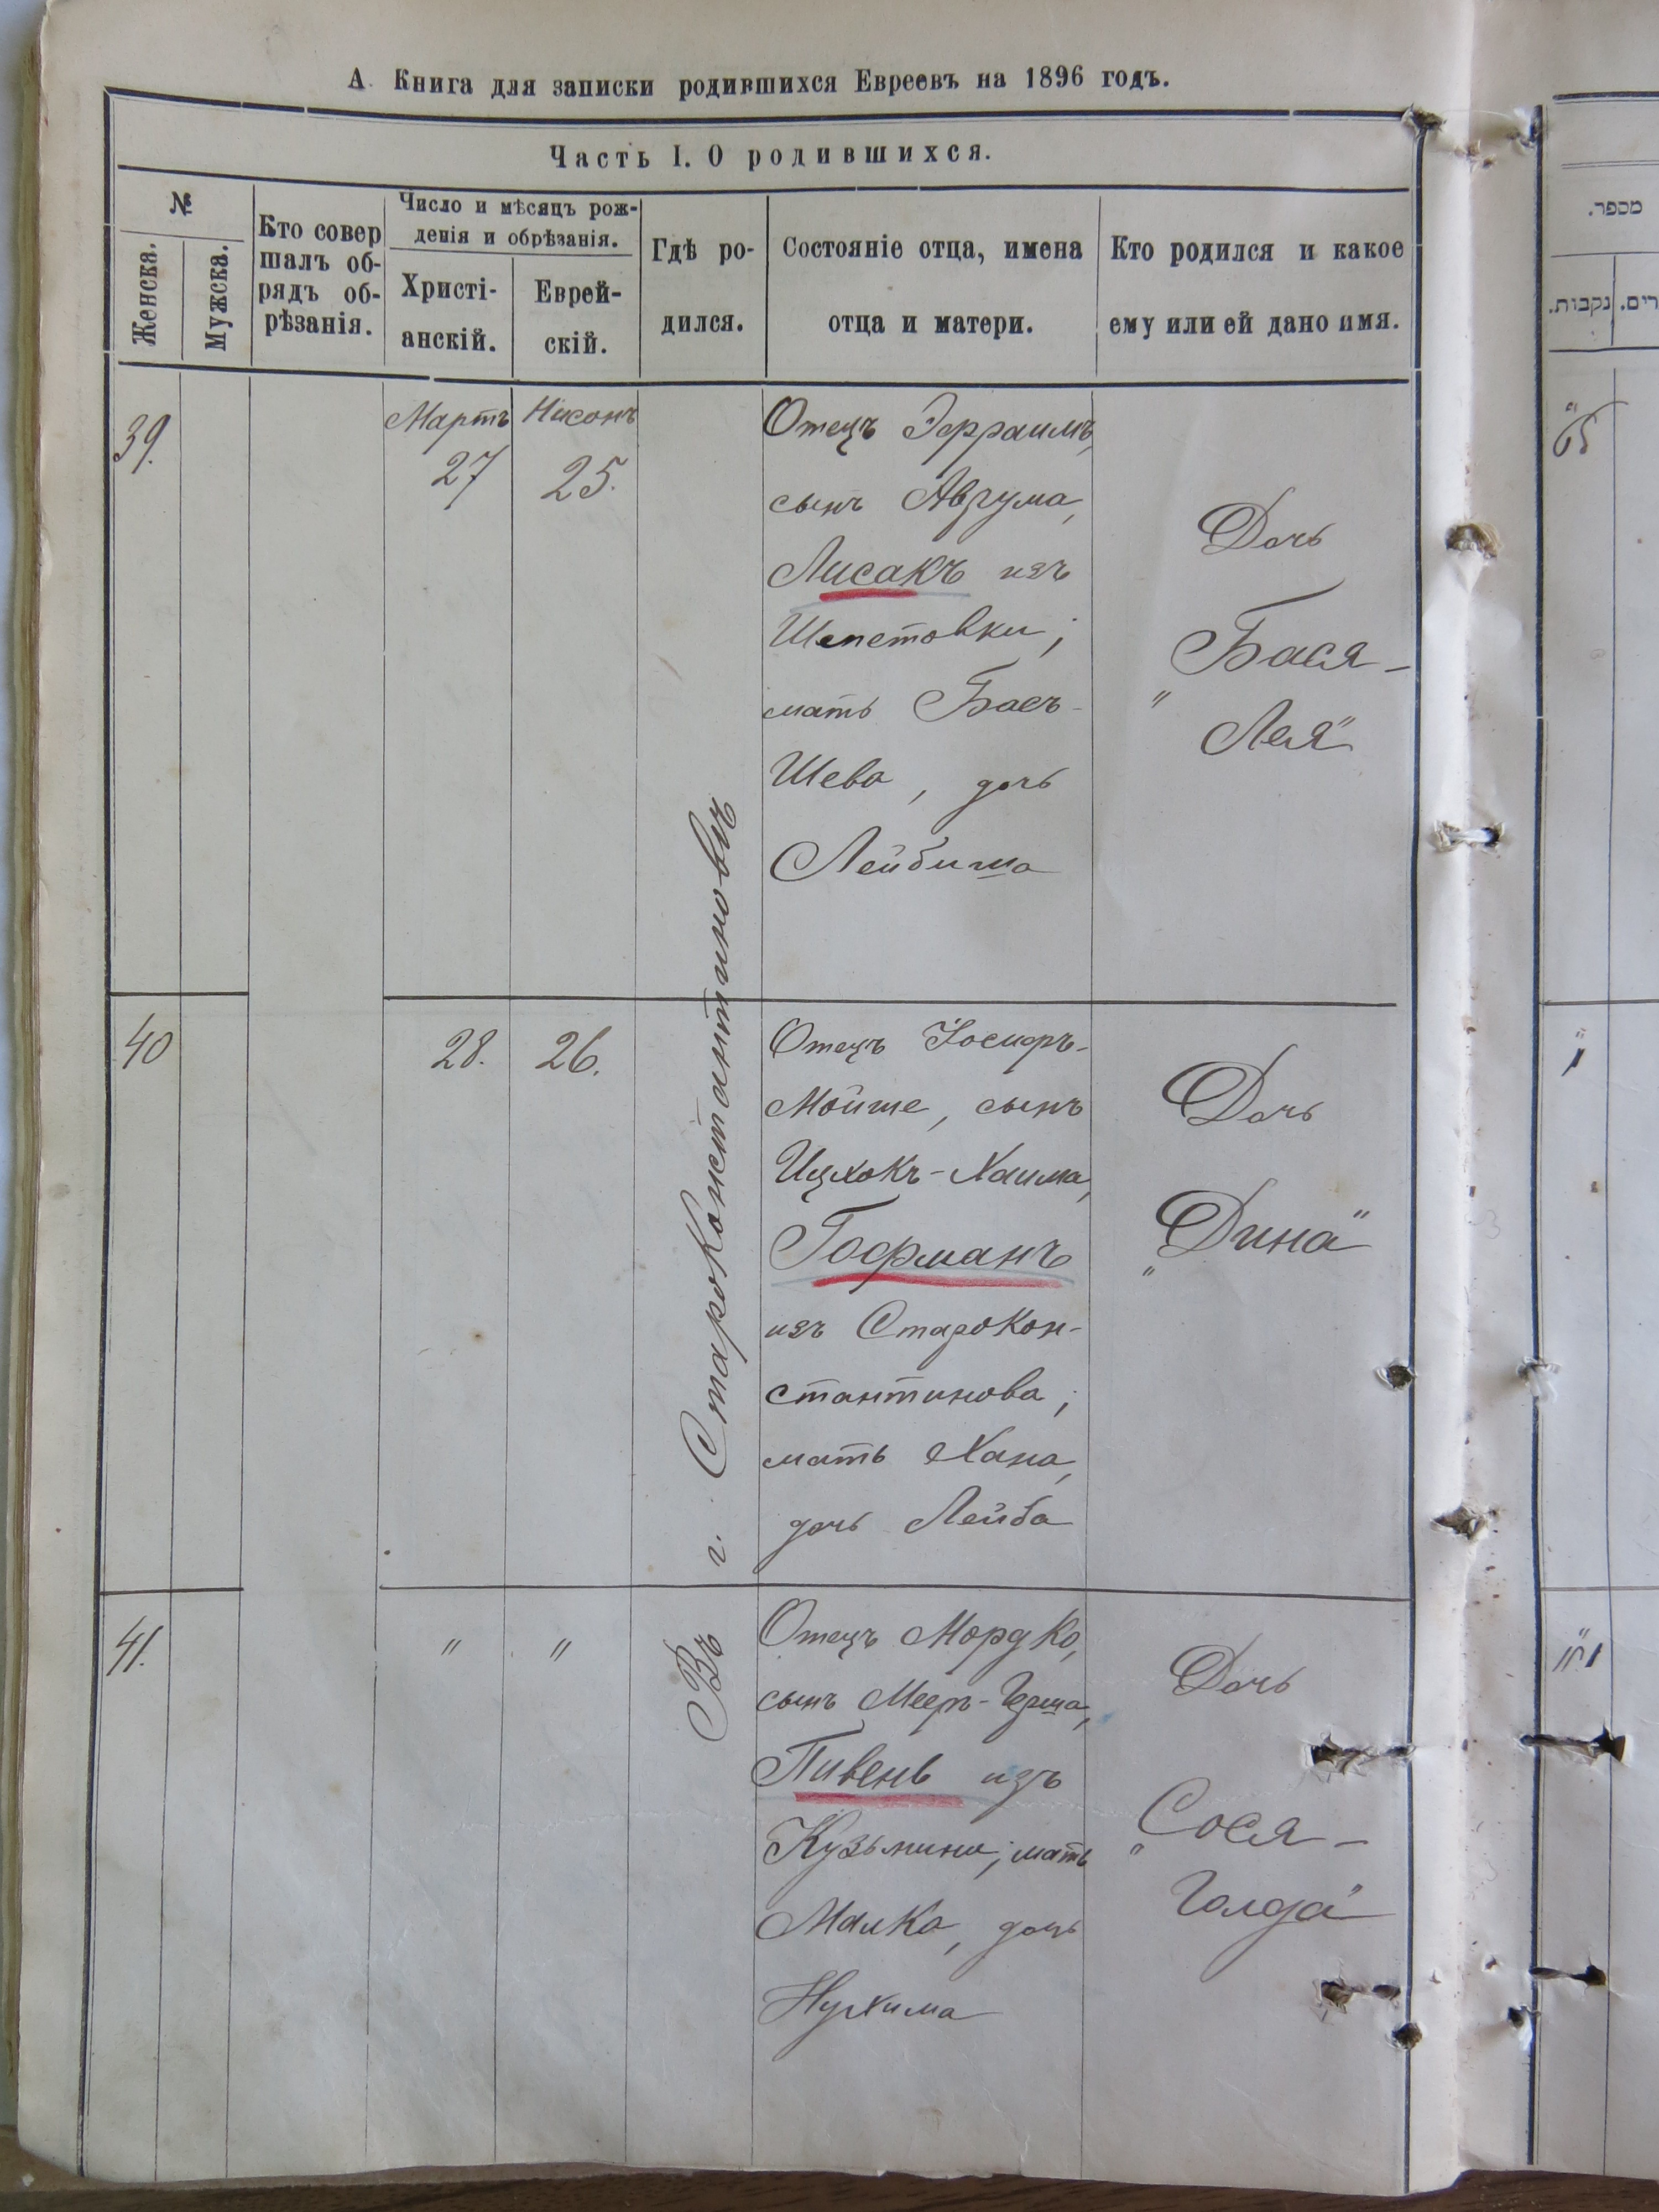 А. Книга для записки родившихся Евреевъ на 1896 годъ.
Часть I. О родившихся.
№
Женска.
Мужска.
Кто совер
шалъ об-
рядъ об-
рѣзанія.
Число и мѣсяцъ рож-
денія и обрѣзанія.
Христі-
анскій.
Еврей-
скій.
Гдѣ ро-
дился.
Состояніе отца, имена
отца и матери.
Кто родился и какое
ему или ей дано имя.
39.
Мартъ
27
Нисонъ
25.
Отецъ Эфраимъ,
сынъ Аврума,
Лисакъ изъ
Шепетовки;
мать Бась-
Шева, дочь
Лейбиша
Дочь
"Бася-
Лея"
Въ г. Староконстантиновъ
40
28.
26.
Отецъ Іосифъ-
Мойше, сынъ
Ицхокъ-Хаима,
Гофманъ
изъ Старокон-
стантинова;
мать Хана,
дочь Лейба
Дочь
"Дина"
41.
"
"
Отецъ Мордко,
сынъ Мееръ-Герша,
Пивень изъ
Кузьмина; мать
Малка, дочь
Нухима
Дочь
"Сося-
Голда"
מספר.
נקבות.
רים.